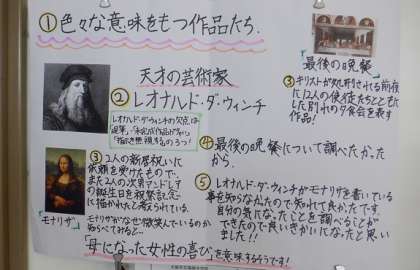 ①色々な意味をもつ作品たち.
天才の芸術家
②レオナルド・ダ・ウィンチ
レオナルド・ダ・ウィンチの欠点は
「遅筆」「未完成作品が多い」
「指示を無視する」の3つ!
③2人の新居祝いに
依頼を受けたもので、
また2人の次男アンドレア
の誕生日を祝祭記念
に描かれたと考えられている.
「モナリザ」
モナリザがなぜ微笑んでいるのか
知らべてみると…
「母になった女性の喜び」を意味するそうです!
「最後の晩餐」
③キリストが処刑される前夜
に12人の使徒たちとともに
した別れの夕食会を表す
作品!
④最後の晩餐について調べたかった
から.
⑤レオナルド・ダ・ウィンチがモナリザを書いている
事を知らなかたので知れて良かたです
自分の気になったことを調べることが
できたので良いきかいになったと思い
ました!!